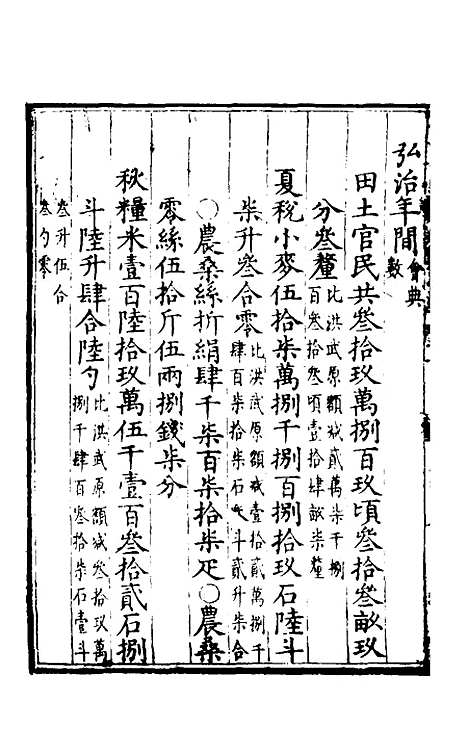 弘治年間會典數
田土官民共叄拾玖萬捌百玖頃叄拾叄畝玖
分叄釐比洪武原額減貳萬柒千捌百叄拾叄頃壹拾肆畝柒釐
夏稅小麥伍拾柒萬捌千捌百捌拾玖石陸斗
柒升叄合零比洪武原額減壹拾貳萬捌千肆百柒拾柒石斗貳升柒合
○農桑絲折絹肆千柒百柒拾柒疋○農桑
零絲伍拾斤伍兩捌錢柒分
秋糧米壹百陸拾玖萬伍千壹百叄拾貳石捌
斗陸升肆合陸勺比洪武原額減叄拾玖萬捌千肆百叄拾柒石壹斗
叄升伍合叄勺零